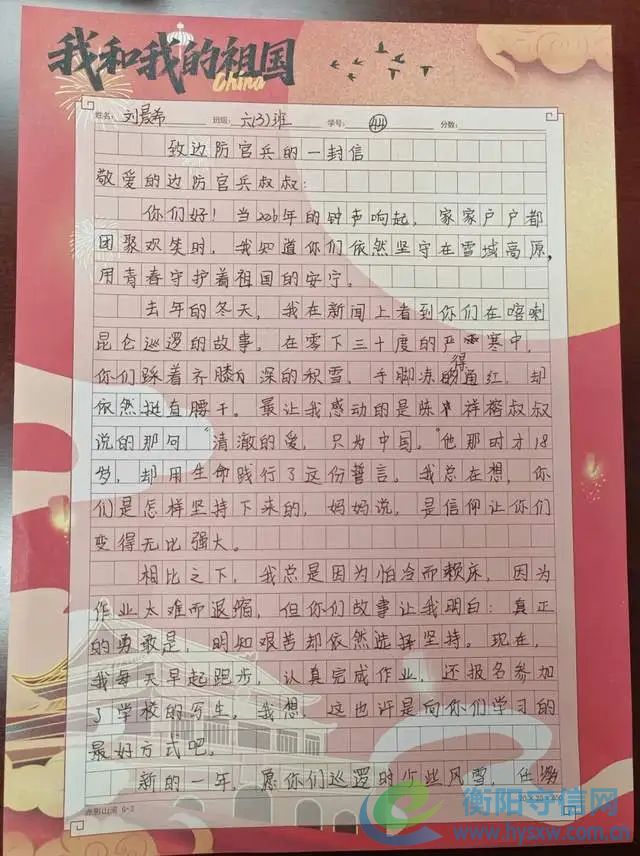 我和我的祖国
China
姓名: 刘晨希 班级: 六(3)班 学号: 44 分数:
致边防官兵的一封信
敬爱的边防官兵叔叔:
你们好!当2026年的钟声响起,家家户户都
团聚欢笑时,我知道你们依然坚守在雪域高原,
用青春守护着祖国的安宁。
去年的冬天,我在新闻上看到你们在喀喇
昆仑巡逻的故事。在零下三十度的严寒中,
你们踩着齐膝深的积雪,手脚冻得通红,却
依然挺直腰干。最让我感动的是陈祥榕叔叔
说的那句"清澈的爱,只为中国。"他那时才18
岁,却用生命践行了这份誓言。我总在想,你
们是怎样坚持下来的,妈妈说,是信仰让你们
变得无比强大。
相比之下,我总是因为怕冷而赖床,因为
作业太难而退缩,但你们故事让我明白:真正
的勇敢是,明知艰苦却依然选择坚持。现在,
我每天早起跑步,认真完成作业,还报名参加
了学校的写生。我想,这也许是向你们学习的
最好方式吧。
新的一年,愿你们巡逻时少些风雪,
20×20=400
衡阳守信网
www.hysxw.com.cn